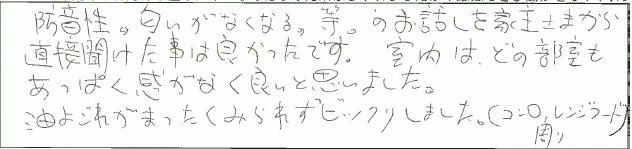 防音性。匂いがなくなる。等。のお話しを家主さまから
直接聞けた事は良かったです。室内は、どの部室も
あっぱく感がなく良いと思いました。
油よごれがまったくみられずビックリしました。(コンロ,レンジフード)
周り